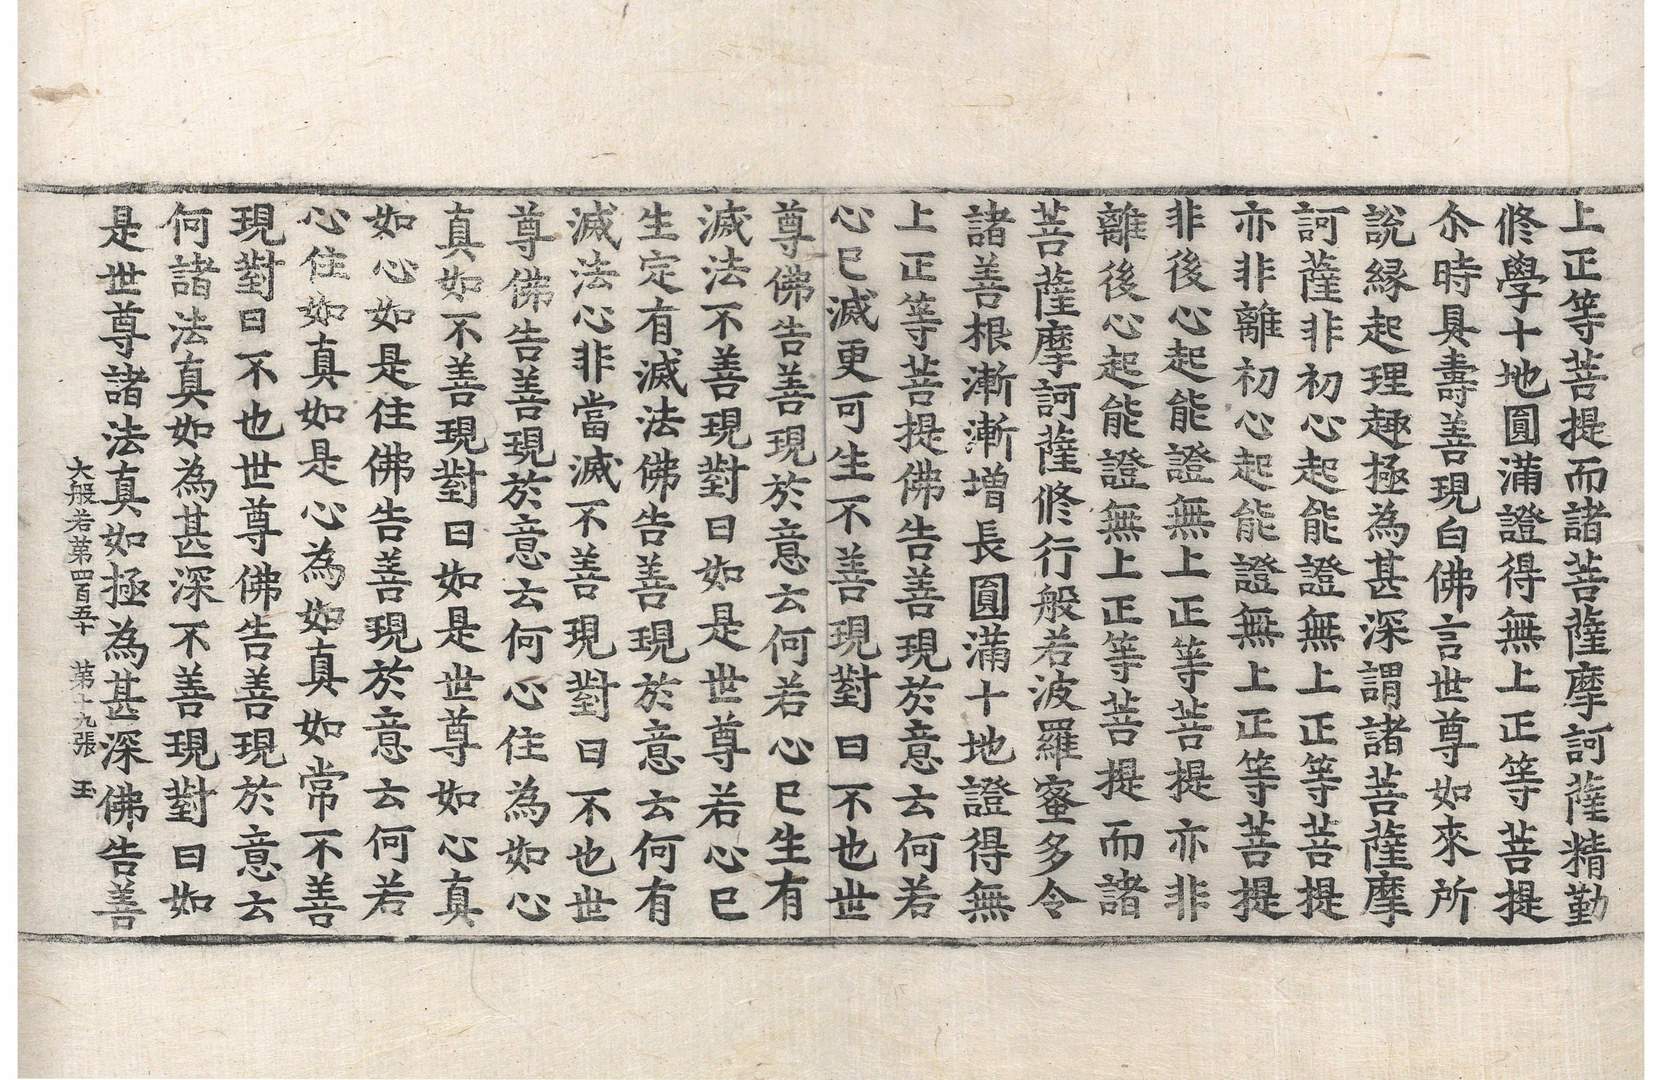 上正等菩提而諸菩薩摩訶薩精勤
修學十地圓滿證得無上正等菩提
尒時具壽善現白佛言世尊如來所
說緣起理趣極為甚深謂諸菩薩摩
訶薩非初心起能證無上正等菩提
亦非離初心起能證無上正等菩提
非後心起能證無上正等菩提亦非
離後心起能證無上正等菩提而諸
菩薩摩訶薩修行般若波羅蜜多令
諸善根漸漸增長圓滿十地證得無
上正等菩提佛告善現於意云何若
心已滅更可生不善現對曰不也世
尊佛告善現於意云何若心已生有
滅法不善現對曰如是世尊若心已
生定有滅法佛告善現於意云何有
滅法心非當滅不善現對曰不也世
尊佛告善現於意云何心住為如心
真如不善現對曰如是世尊如心真
如心如是住佛告善現於意云何若
心住如真如是心為如真如常不善
現對曰不也世尊佛告善現於意云
何諸法真如為甚深不善現對曰如
是世尊諸法真如極為甚深佛告善
大般若第四百五十 第十九張 玉